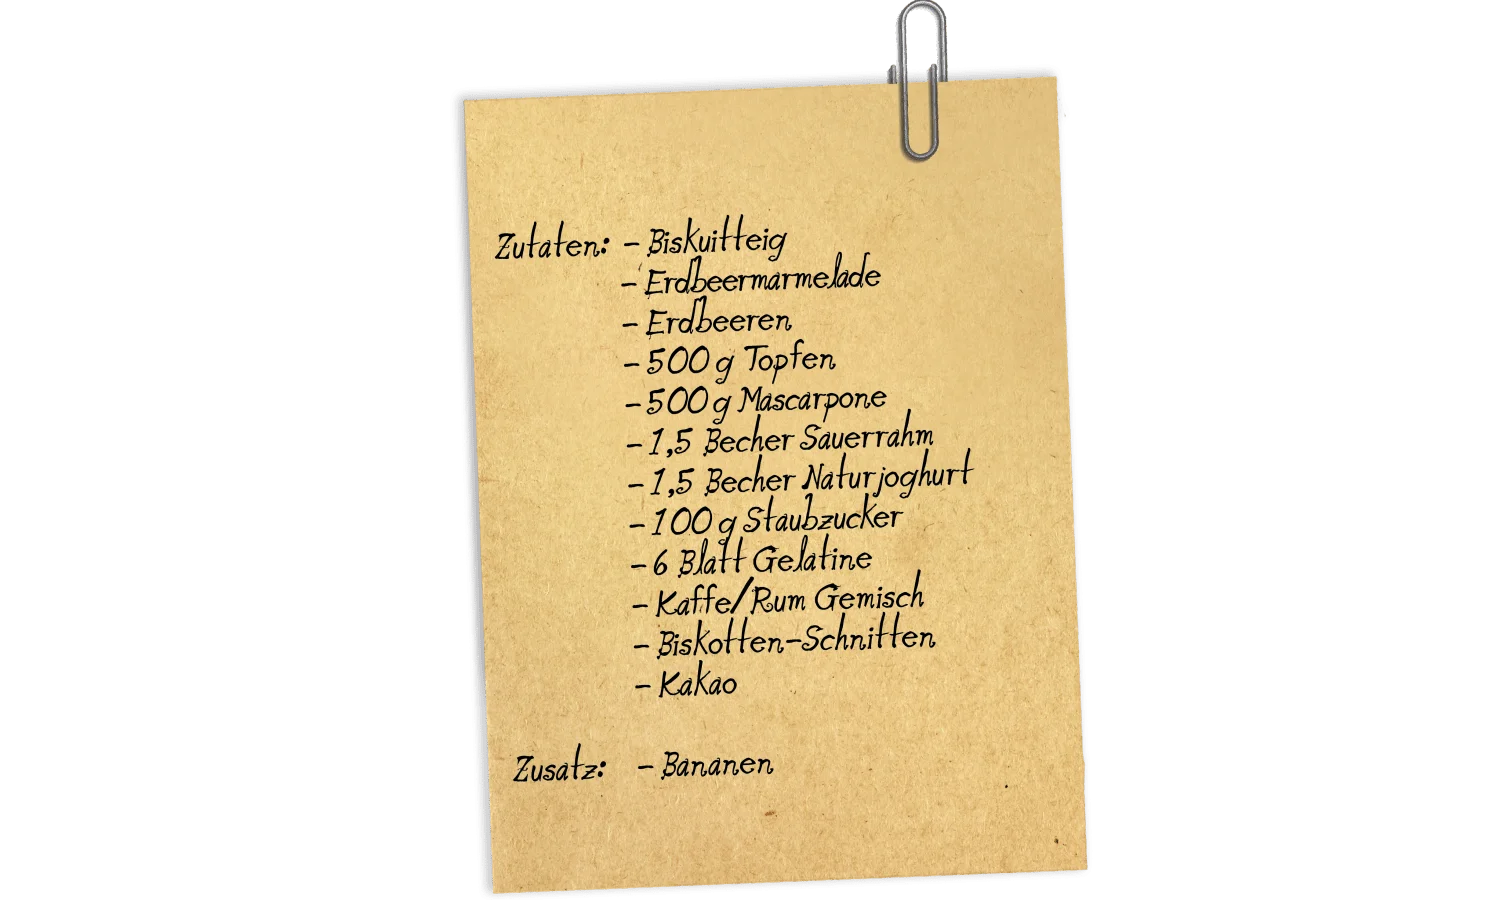 Zutaten: - Biskuitteig
- Erdbeermarmelade
- Erdbeeren
- 500 g Topfen
- 500 g Mascarpone
- 1,5 Becher Sauerrahm
- 1,5 Becher Naturjoghurt
- 100 g Staubzucker
- 6 Blatt Gelatine
- Kaffe/Rum Gemisch
- Biskotten-Schnitten
- Kakao
Zusatz: - Bananen